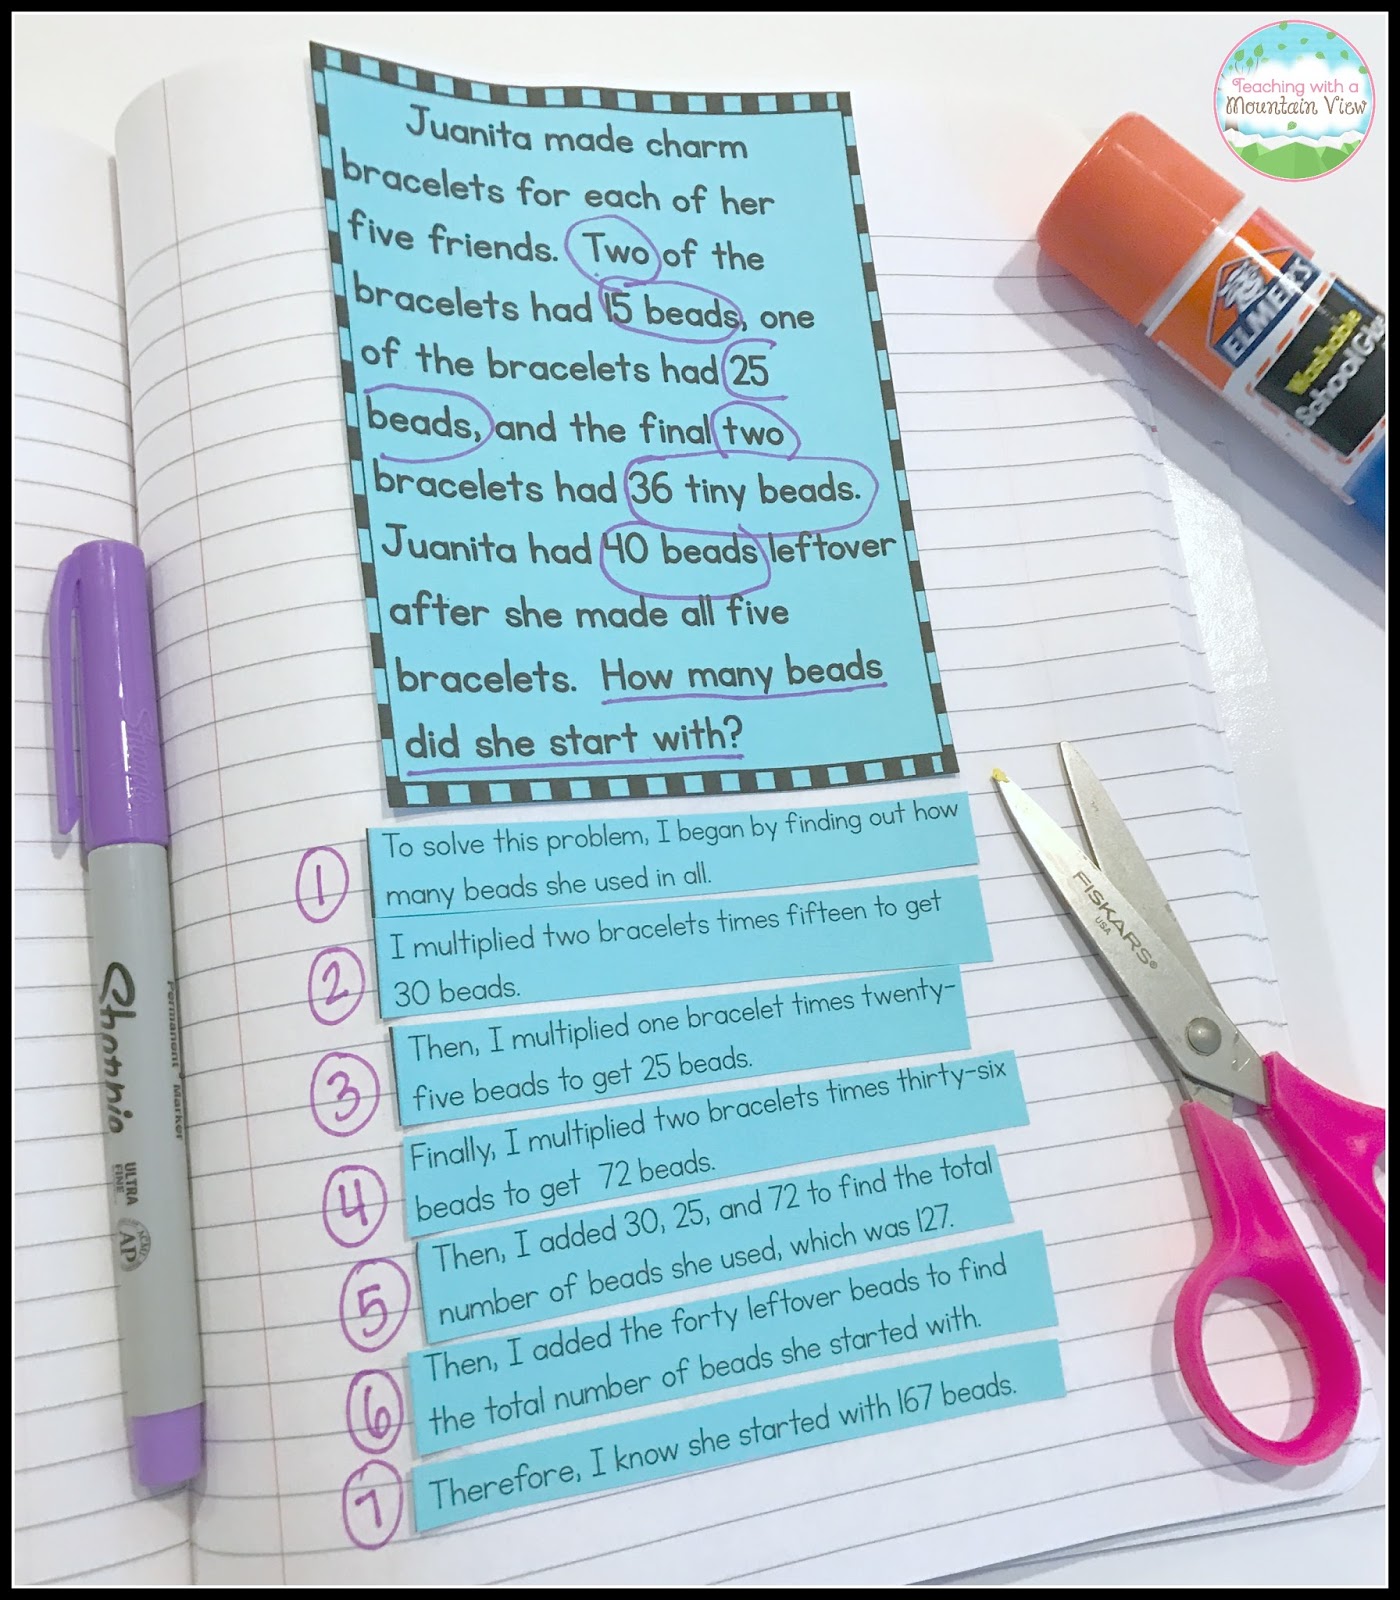 Teaching with a
Mountain View
Juanita made charm
bracelets for each of her
five friends. Two of the
bracelets had 15 beads, one
of the bracelets had 25
beads, and the final two
bracelets had 36 tiny beads.
Juanita had 40 beads leftover
after she made all five
bracelets. How many beads
did she start with?
1
To solve this problem, I began by finding out how
many beads she used in all.
2
I multiplied two bracelets times fifteen to get
30 beads.
3
Then, I multiplied one bracelet times twenty-
five beads to get 25 beads.
4
Finally, I multiplied two bracelets times thirty-six
beads to get 72 beads.
5
Then, I added 30, 25, and 72 to find the total
number of beads she used, which was 127.
6
Then, I added the forty leftover beads to find
the total number of beads she started with.
7
Therefore, I know she started with 167 beads.
ELMER'S
Washable
School
FISKARS®
USA
Sharpie
Permanent Marker
ULTRA
FINE
AP